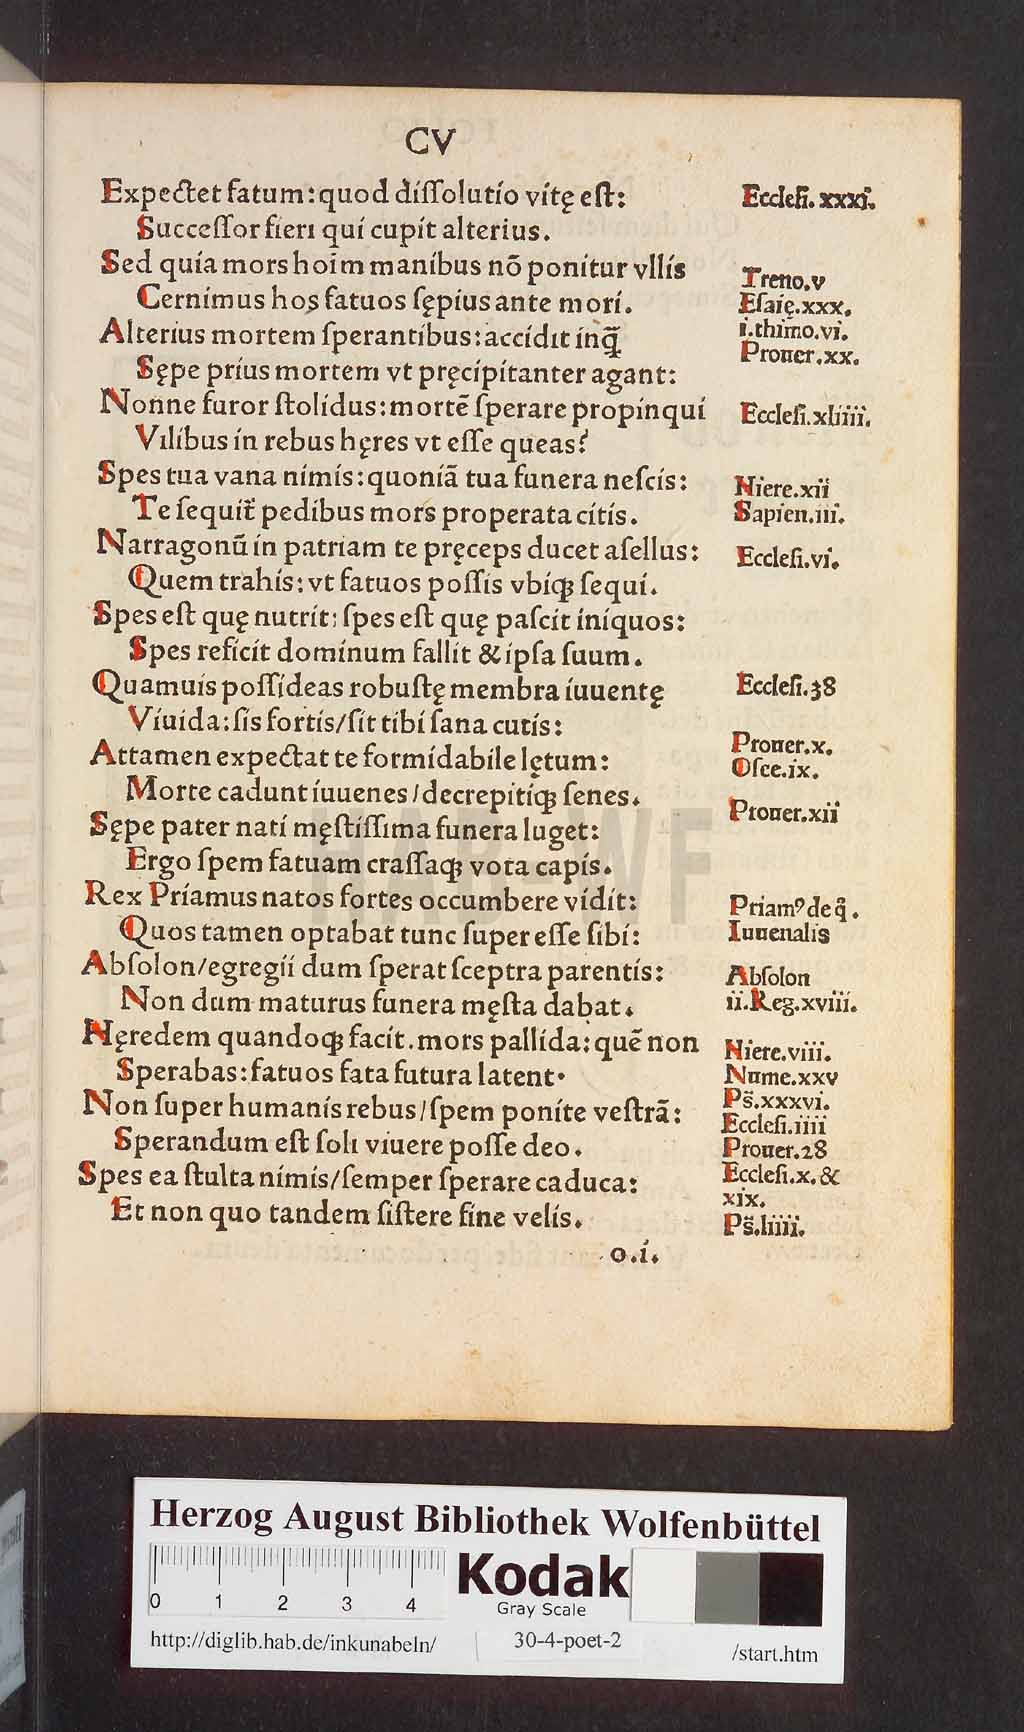 CV
Expectet fatum: quod diſſolutio vitę eſt:
Succeſſor fieri qui cupit alterius.
Sed quia mors hoim manibus nō ponitur vllis
Cernimus hos fatuos ſępius ante mori.
Alterius mortem ſperantibus: accidit inq̃
Sępe prius mortem vt pręcipitanter agant:
Nonne furor ſtolidus: mortē ſperare propinqui
Vilibus in rebus hęres vt eſſe queas?
Spes tua vana nimis: quoniā tua funera neſcis:
Te ſequit̃ pedibus mors properata citis.
Narragonū in patriam te pręceps ducet aſellus:
Quem trahis: vt fatuos poſſis vbiqꝫ ſequi.
Spes eſt quę nutrit: ſpes eſt quę paſcit iniquos:
Spes reficit dominum fallit & ipſa ſuum.
Quamuis poſſideas robuſtę membra iuuentę
Viuida: ſis fortis/ſit tibi ſana cutis:
Attamen expectat te formidabile lętum:
Morte cadunt iuuenes/decrepitiqꝫ ſenes.
Sępe pater nati męſtiſſima funera luget:
Ergo ſpem fatuam craſſaqꝫ vota capis.
Rex Priamus natos fortes occumbere vidit:
Quos tamen optabat tunc ſuper eſſe ſibi:
Abſolon/egregii dum ſperat ſceptra parentis:
Non dum maturus funera męſta dabat.
Hęredem quandoqꝫ facit. mors pallida: quē non
Sperabas: fatuos fata futura latent.
Non ſuper humanis rebus/ſpem ponite veſtrā:
Sperandum eſt ſoli viuere poſſe deo.
Spes ea ſtulta nimis/ſemper ſperare caduca:
Et non quo tandem ſiſtere fine velis.
o.i.
Eccleſi. xxxi.
Treno.v
Eſaię.xxx.
i.thimo.vi.
Prouer.xx.
Eccleſi.xliiii.
Niere.xii
Sapien.iii.
Eccleſi.vi.
Eccleſi.38
Prouer.x.
Oſee.ix.
Prouer.xii
Priamꝰ de q̃.
Iuuenalis
Abſolon
ii.Reg.xviii.
Niere.viii.
Nume.xxv
Ps̃.xxxvi.
Eccleſi.iiii
Prouer.28
Eccleſi.x.&
xix.
Ps̃.liiii.
HAB-WF
Herzog August Bibliothek Wolfenbüttel
0 1 2 3 4
Kodak
Gray Scale
http://diglib.hab.de/inkunabeln/ 30-4-poet-2 /start.htm